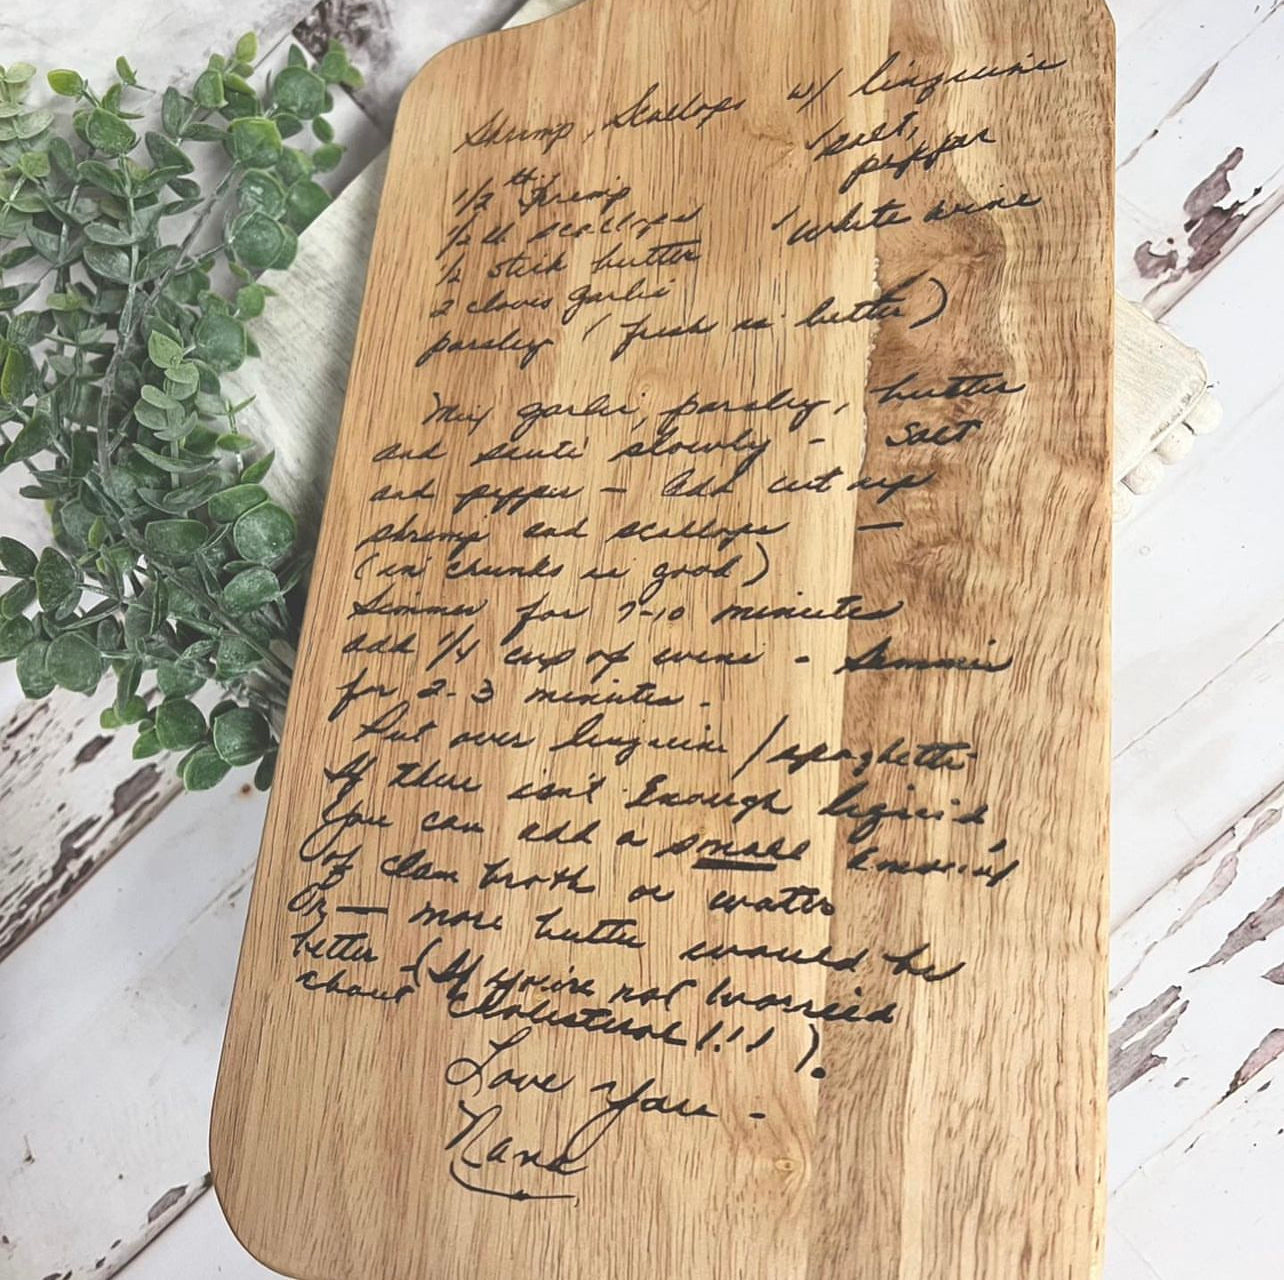 Shrimp, Scallops w/ linguine
salt,
pepper
1/2 lb shrimp
1/2 lb scallops
white wine
1/2 stick butter
2 cloves garlic
parsley (fresh is better)
Mix garlic, parsley, butter
and sauté slowly - salt
and pepper - Add cut up
shrimp and scallops —
(in chunks is good)
Simmer for 7-10 minutes
add 1/4 cup of wine - Simmer
for 2-3 minutes.
Put over linguine / spaghetti
If there isn't Enough liquid,
you can add a small amount
of clam broth or water
Or — more butter would be
better - (If you're not worried
about Cholesterol!!!).
Love You -
Nana